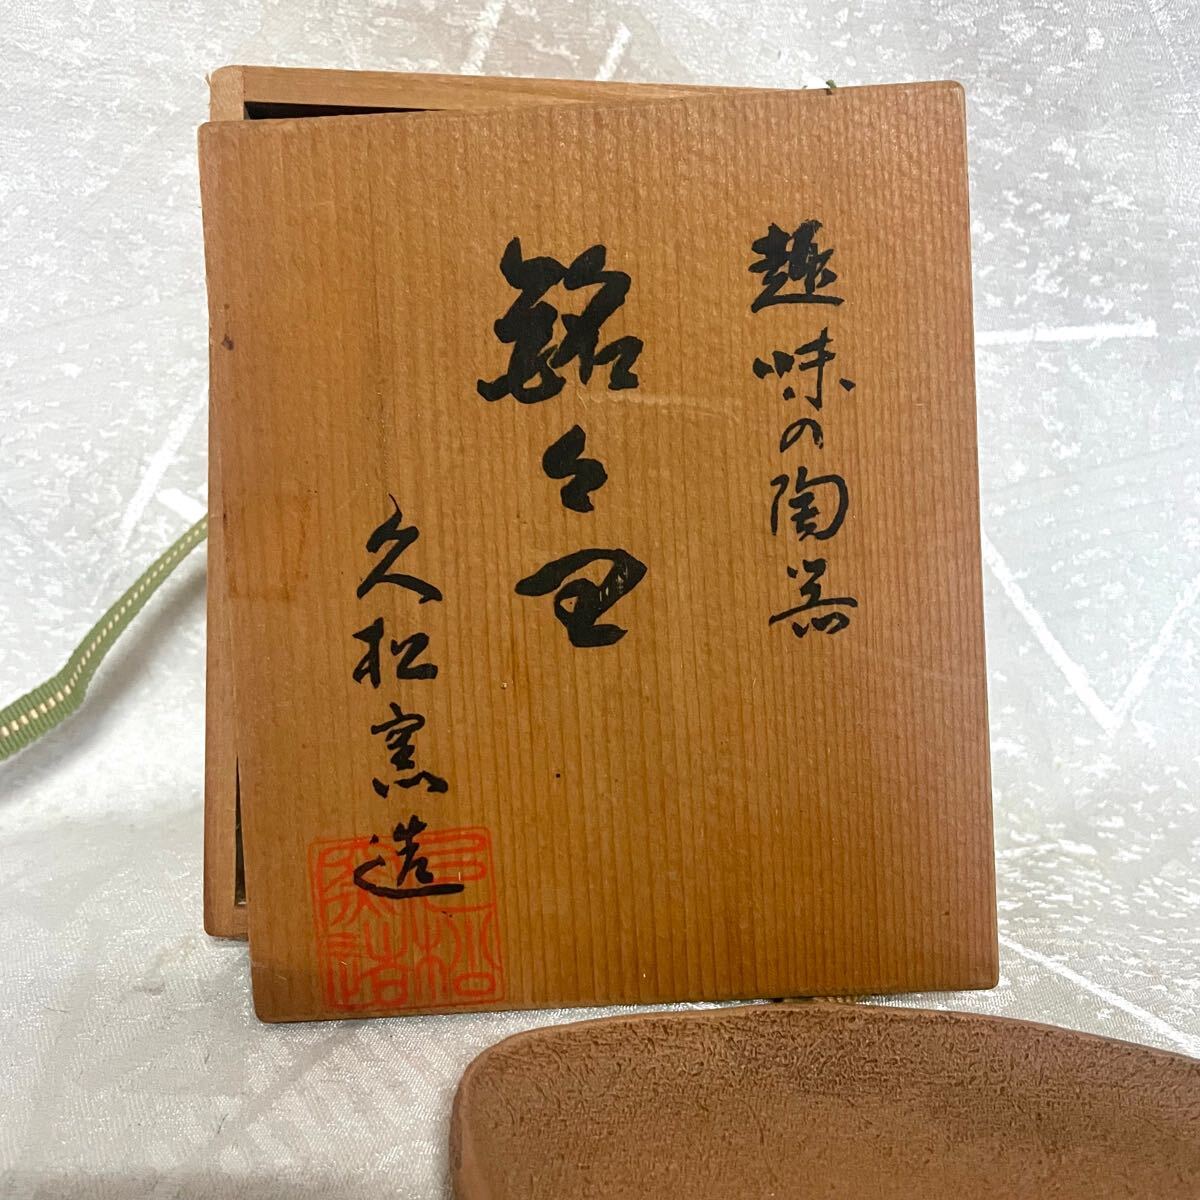 趣味の陶器
銘々皿
久松窯造